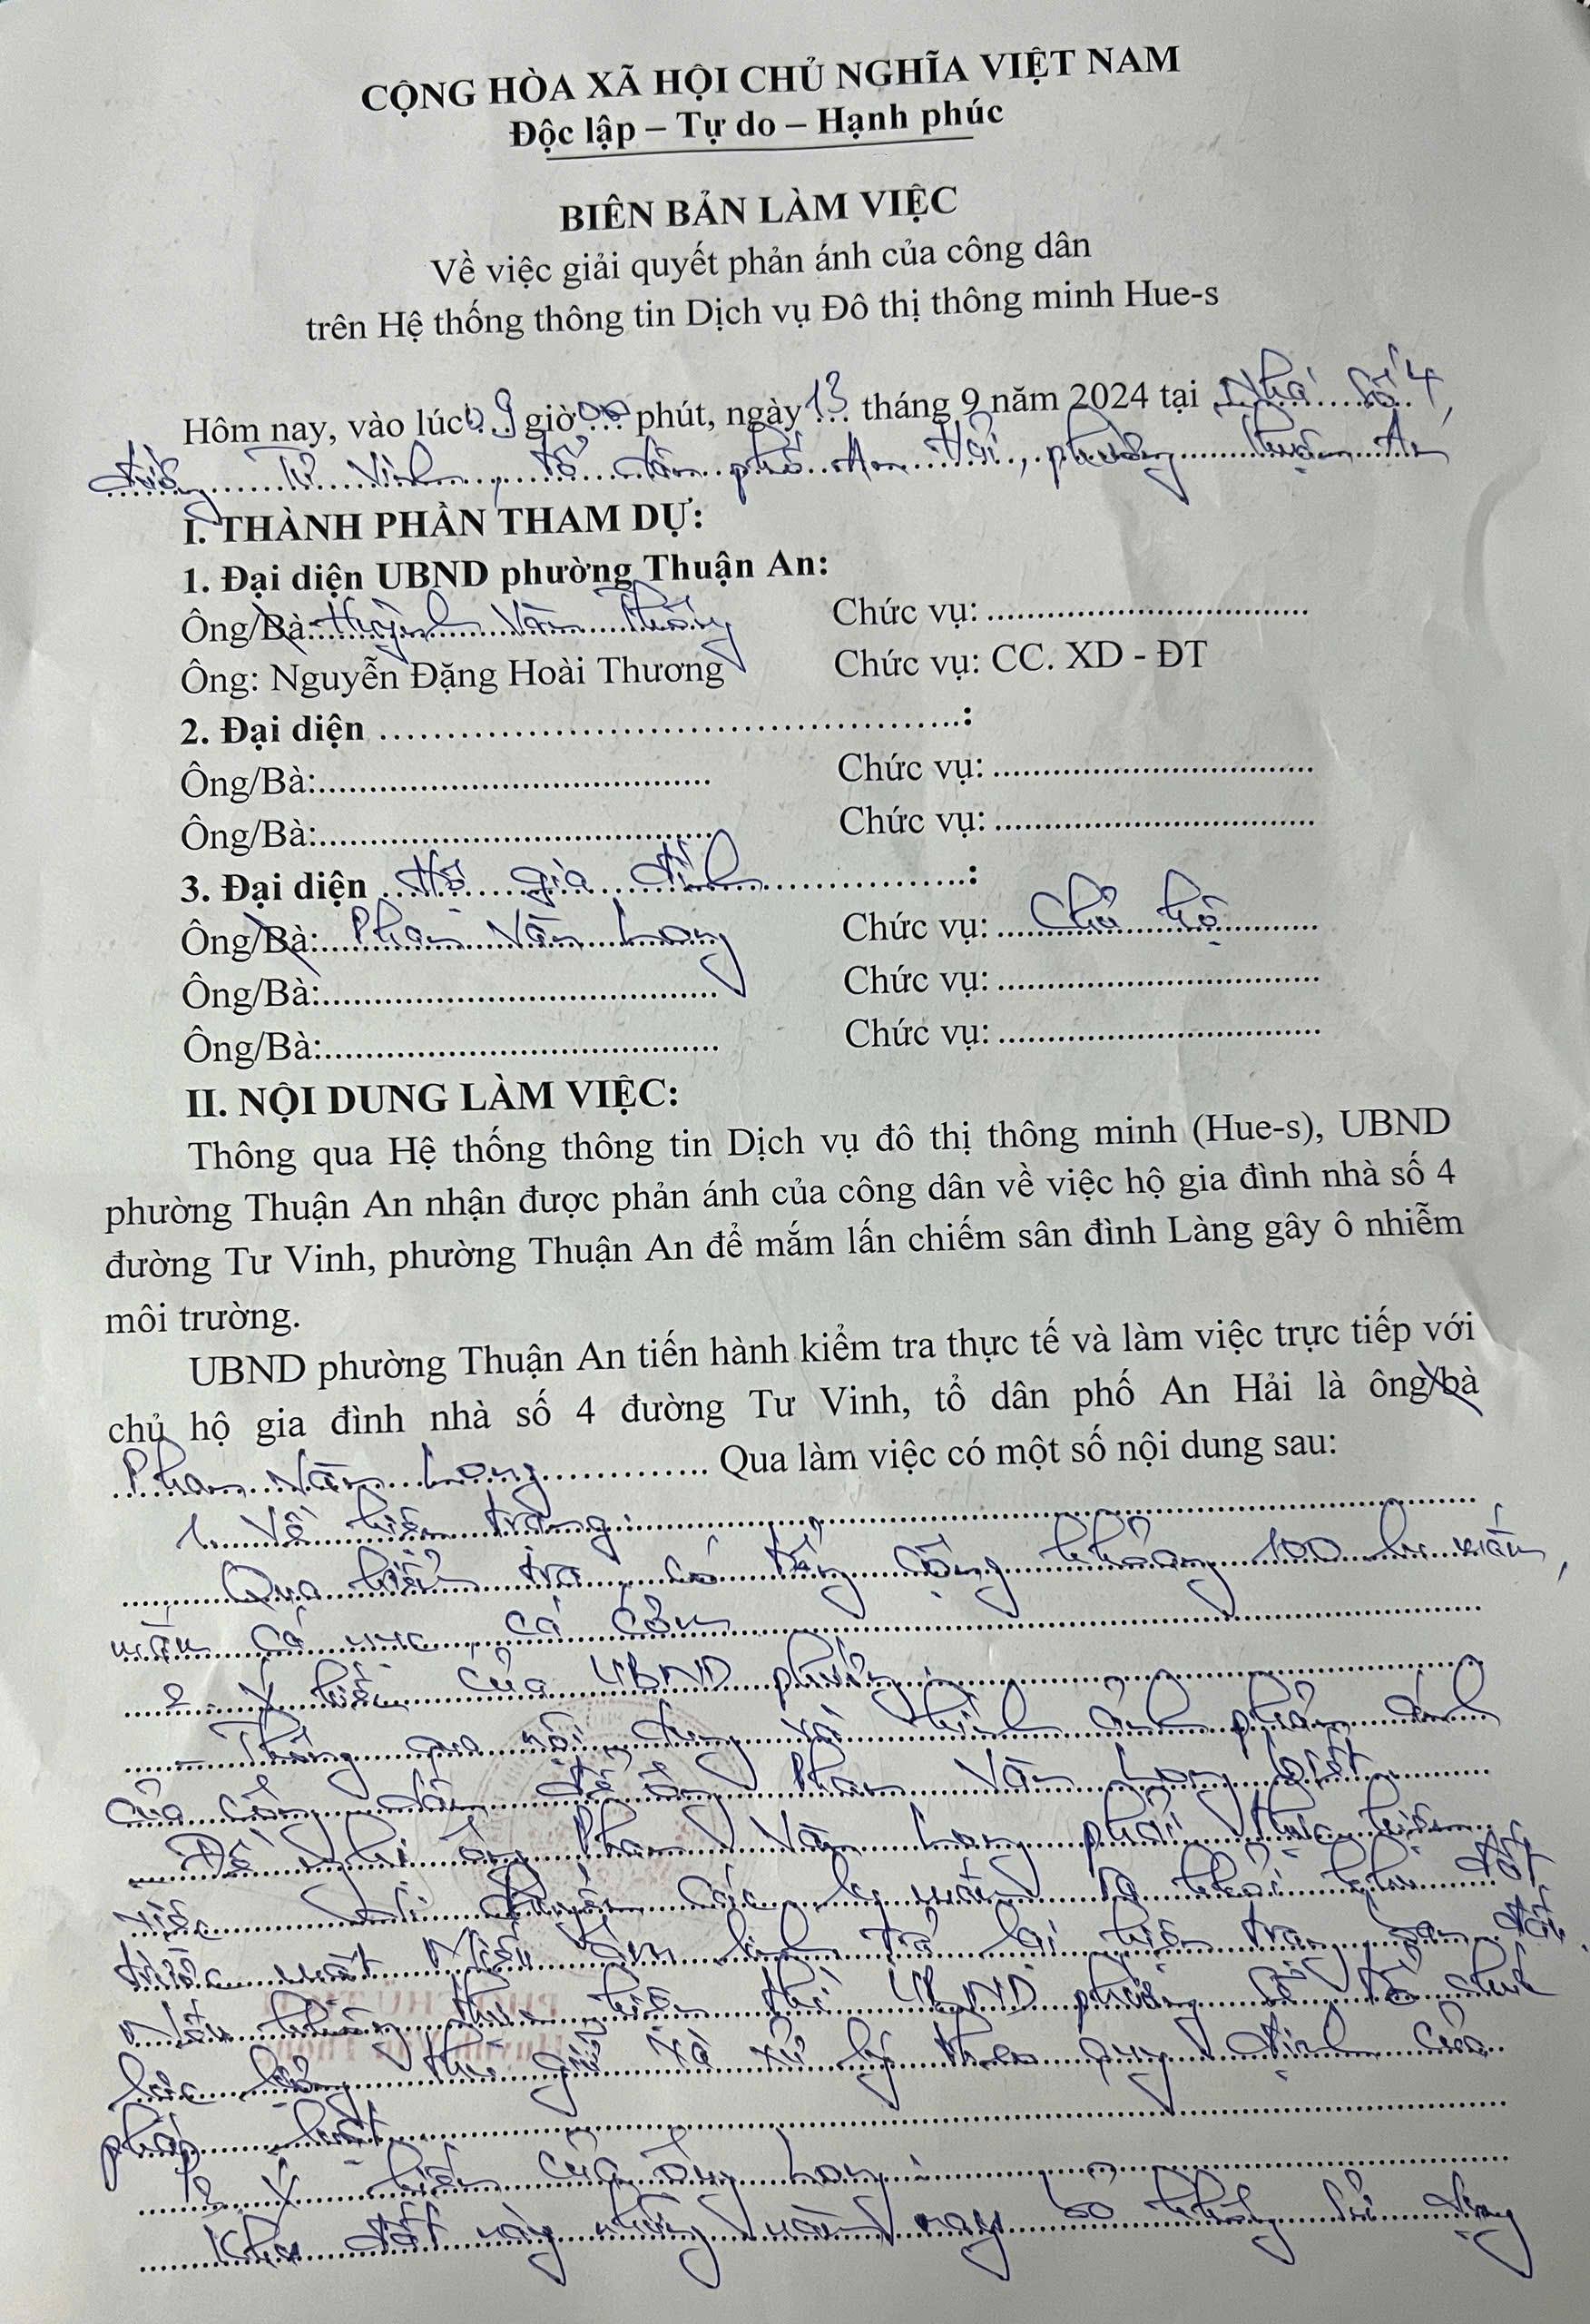 CỘNG HÒA XÃ HỘI CHỦ NGHĨA VIỆT NAM
Độc lập – Tự do – Hạnh phúc
BIÊN BẢN LÀM VIỆC
Về việc giải quyết phản ánh của công dân
trên Hệ thống thông tin Dịch vụ Đô thị thông minh Hue-s
Hôm nay, vào lúc 09 giờ 00 phút, ngày 13 tháng 9 năm 2024 tại Nhà số 4,
đường Tư Vinh, tổ dân phố An Hải, phường Thuận An
I. THÀNH PHẦN THAM DỰ:
1. Đại diện UBND phường Thuận An:
Ông/Bà: Huỳnh Văn Thống Chức vụ: ....................
Ông: Nguyễn Đặng Hoài Thương Chức vụ: CC. XD - ĐT
2. Đại diện ....................:
Ông/Bà:.................... Chức vụ: ....................
Ông/Bà:.................... Chức vụ: ....................
3. Đại diện Hộ gia đình:
Ông/Bà: Phan Văn Long Chức vụ: Chủ hộ
Ông/Bà:.................... Chức vụ: ....................
Ông/Bà:.................... Chức vụ: ....................
II. NỘI DUNG LÀM VIỆC:
Thông qua Hệ thống thông tin Dịch vụ đô thị thông minh (Hue-s), UBND
phường Thuận An nhận được phản ánh của công dân về việc hộ gia đình nhà số 4
đường Tư Vinh, phường Thuận An để mắm lấn chiếm sân đình Làng gây ô nhiễm
môi trường.
UBND phường Thuận An tiến hành kiểm tra thực tế và làm việc trực tiếp với
chủ hộ gia đình nhà số 4 đường Tư Vinh, tổ dân phố An Hải là ông/bà
Phan Văn Long. Qua làm việc có một số nội dung sau:
1. Về hiện trạng:
Qua kiểm tra có tổng cộng khoảng 100 lu mắm,
mắm cá nục, cá cơm
2. Ý kiến của UBND phường:
- Thông qua nội dung và hình ảnh phản ánh
của công dân để ông Phan Văn Long biết.
- Đề nghị ông Phan Văn Long phải thực hiện
việc di chuyển các lu mắm ra khỏi khu đất
trước mặt Miếu âm linh trả lại hiện trạng ban đầu.
Nếu không thực hiện thì UBND phường sẽ tổ chức
lực lượng thu giữ và xử lý theo quy định của
pháp luật.
3. Ý kiến của ông Long:
Khu đất này những năm nay bỏ không sử dụng